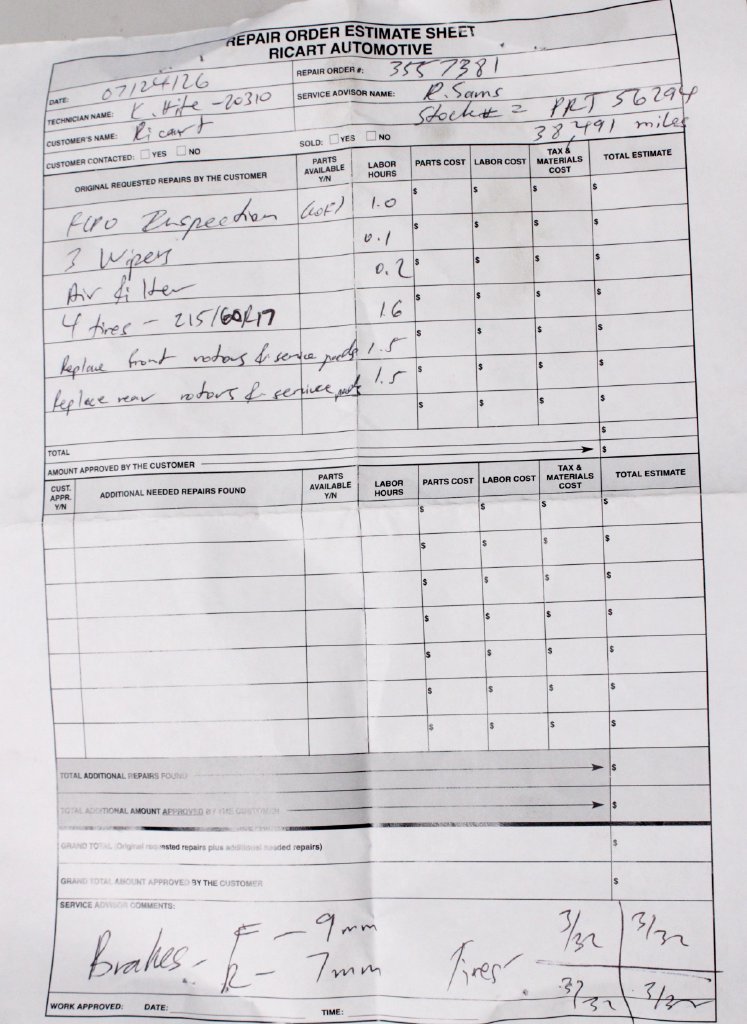 REPAIR ORDER ESTIMATE SHEET
RICART AUTOMOTIVE
DATE: 07/24/26
REPAIR ORDER #: 3557381
TECHNICIAN NAME: K. Hite - 20310
SERVICE ADVISOR NAME: R. Sams
CUSTOMER'S NAME: Ricart
Stock# = PRT 56294
38,491 miles
CUSTOMER CONTACTED: YES NO
SOLD: YES NO
ORIGINAL REQUESTED REPAIRS BY THE CUSTOMER PARTS AVAILABLE Y/N LABOR HOURS PARTS COST LABOR COST TAX & MATERIALS COST TOTAL ESTIMATE
FCPO Inspection (LOF) 1.0 $ $ $ $
3 Wipers 0.1 $ $ $ $
Air filter 0.2 $ $ $ $
4 tires - 215/60R17 1.6 $ $ $ $
Replace front rotors & service pads 1.5 $ $ $ $
Replace rear rotors & service pads 1.5 $ $ $ $
$ $ $ $
TOTAL $
AMOUNT APPROVED BY THE CUSTOMER $
CUST. APPR. Y/N ADDITIONAL NEEDED REPAIRS FOUND PARTS AVAILABLE Y/N LABOR HOURS PARTS COST LABOR COST TAX & MATERIALS COST TOTAL ESTIMATE
$ $ $ $
$ $ $ $
$ $ $ $
$ $ $ $
$ $ $ $
$ $ $ $
$ $ $ $
TOTAL ADDITIONAL REPAIRS FOUND $
TOTAL ADDITIONAL AMOUNT APPROVED BY THE CUSTOMER $
GRAND TOTAL (Original requested repairs plus additional needed repairs) $
GRAND TOTAL AMOUNT APPROVED BY THE CUSTOMER $
SERVICE ADVISOR COMMENTS:
Brakes - F - 9mm
R - 7mm
Tires 3/32 3/32
3/32 3/32
WORK APPROVED: DATE: TIME: